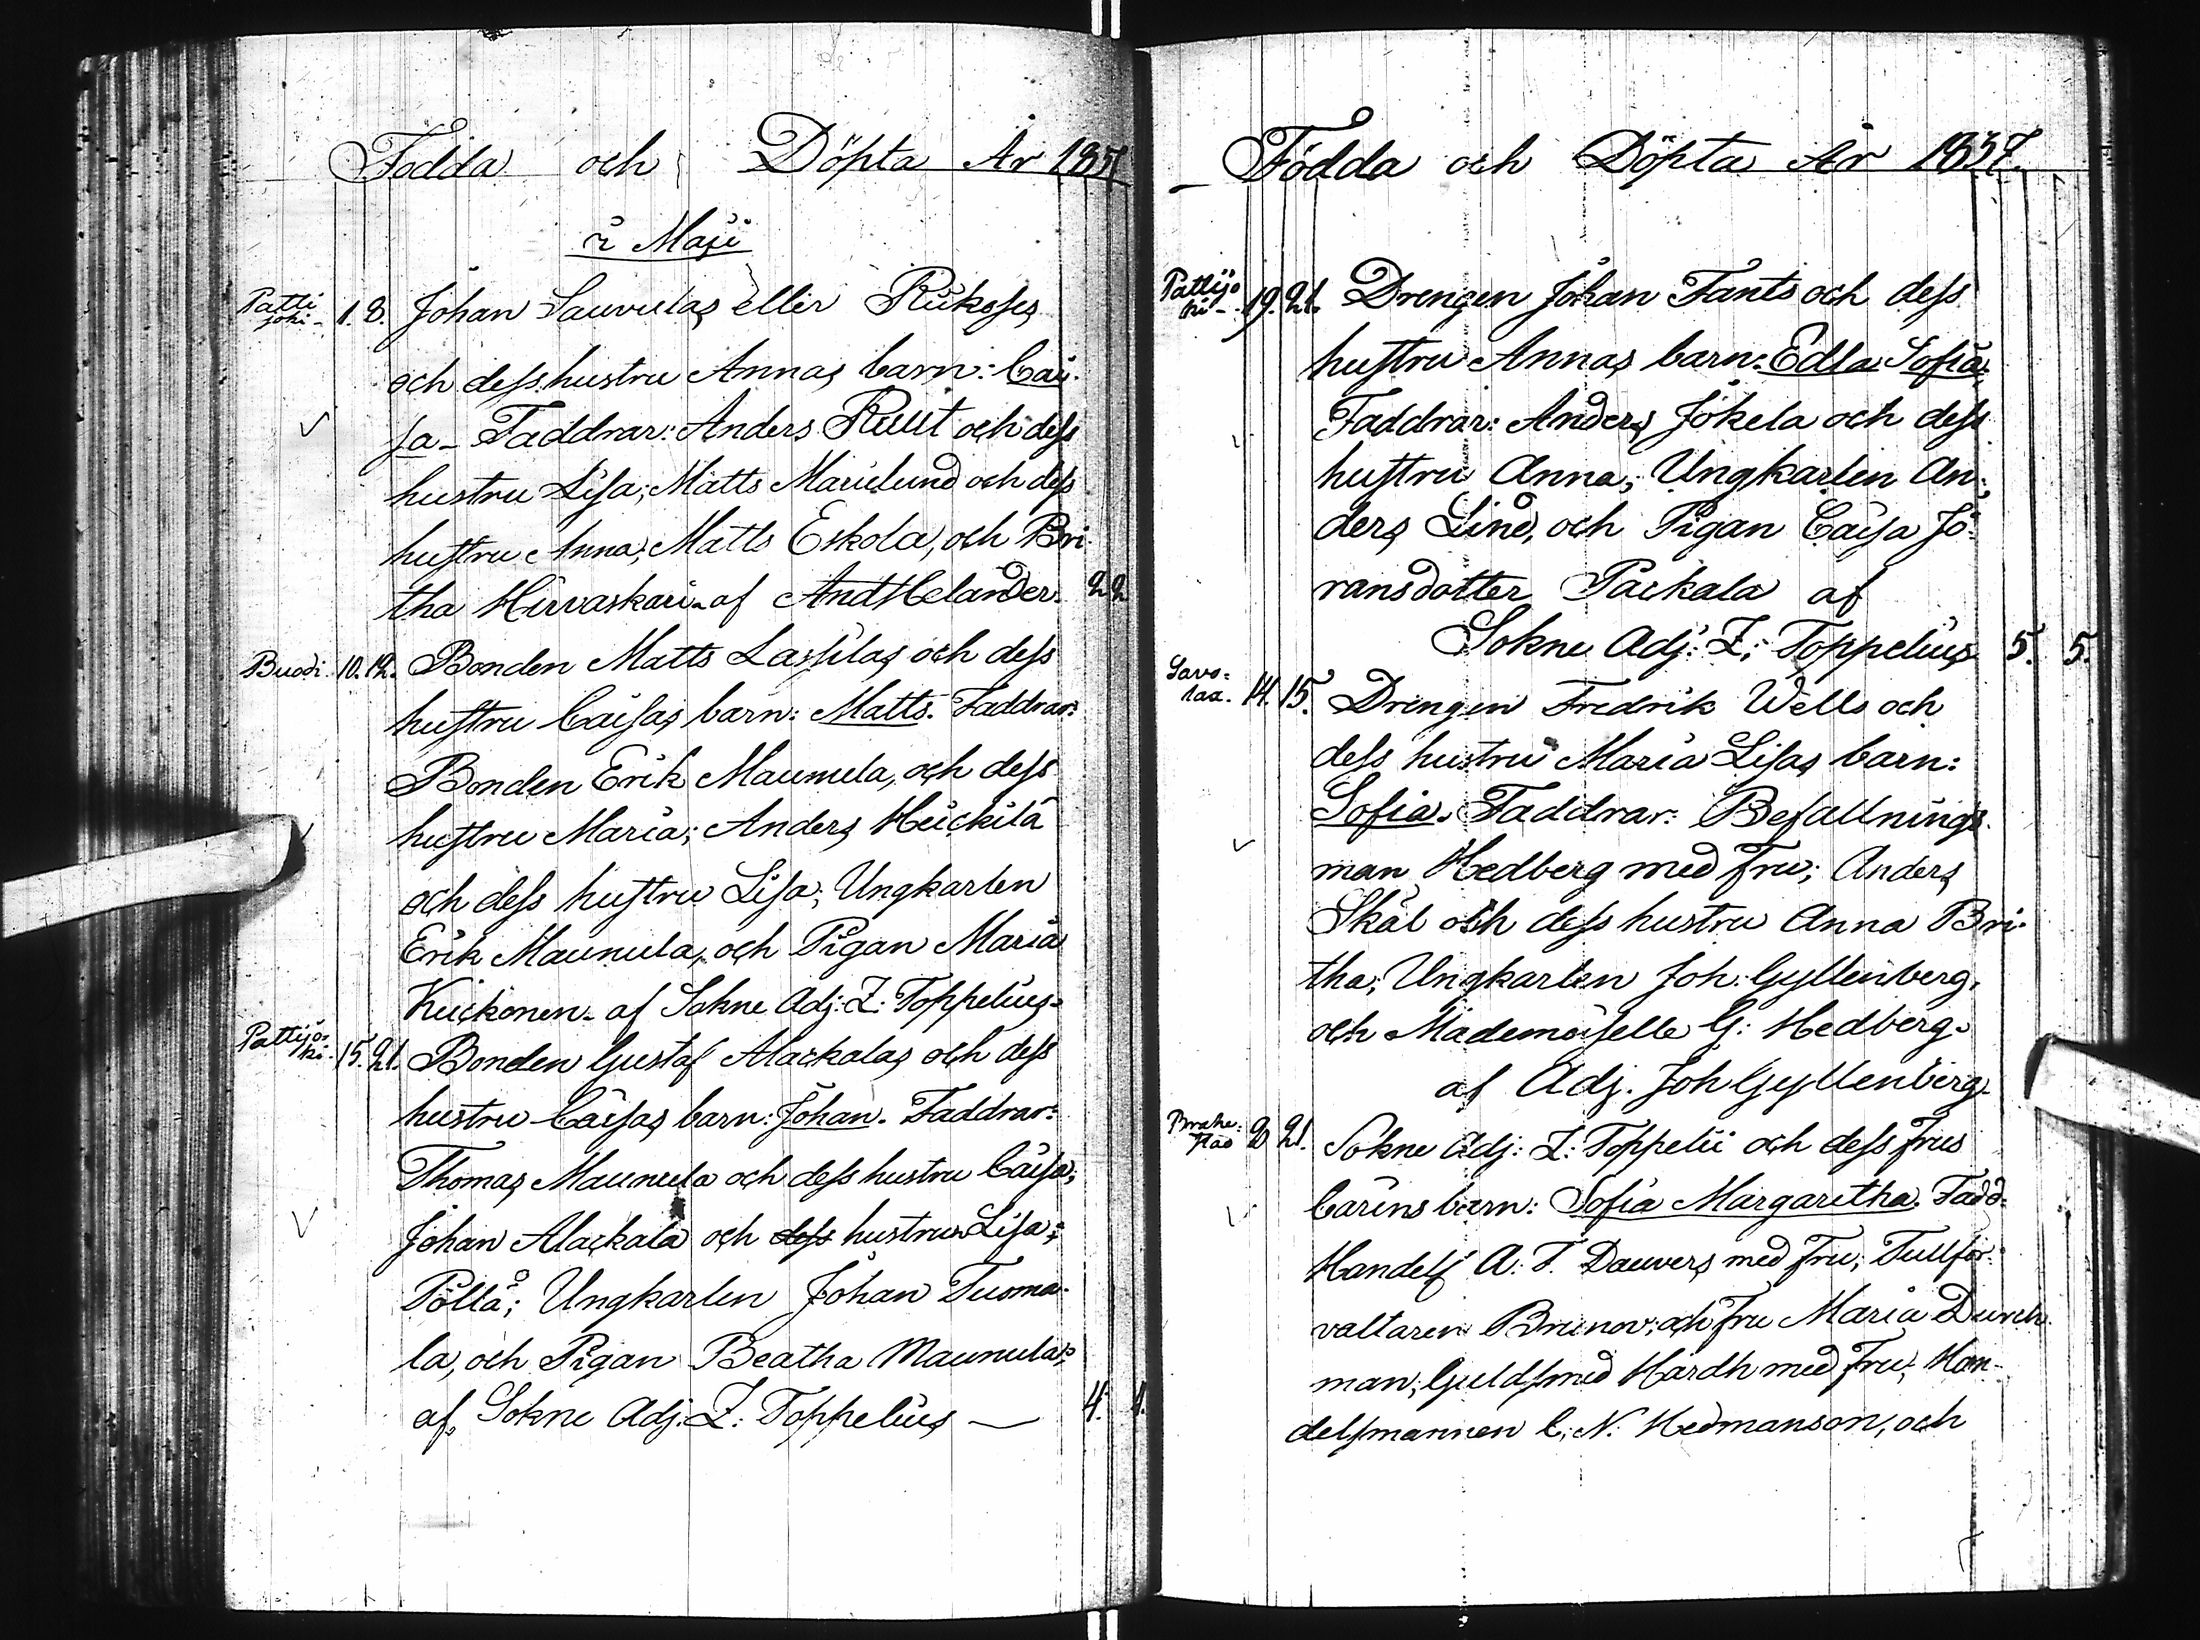 Födda och Döpta År 1837
i Maji
Patti
joki - 1. 8. Johan Sauvulas eller Rukoses
och dess hustru Annas barn: Cai-
sa - Faddrar: Anders Ruut och dess
hustru Lisa; Matts Marielund och dess
hustru Anna; Matts Eskola, och Bri-
tha Hirvaskari - af And Helander. 2 2
Buodi. 10. 12. Bonden Matts Lassilas och dess
hustru Caisas barn: Matts. Faddrar:
Bonden Erik Maunula, och dess
hustru Maria; Anders Heickilä
och dess hustru Lisa; Ungkarlen
Erik Maunula, och Pigan Maria
Kuckonen - af Sokne Adj: Z: Toppelius -
Pattijo-
ki - 15. 21. Bonden Gustaf Alackalas och dess
hustru Caisas barn: Johan. Faddrar:
Thomas Maunula och dess hustru Caisa;
Johan Alackala och dess hustru Lisa;
Pöllä; Ungkarlen Johan Tuoma-
la, och Pigan Beatha Maunula;
af Sokne Adj. Z: Toppelius — 4. 4.
Födda och Döpta År 1837.
Pattijo
ki - 19. 21. Drengen Johan Fants och dess
hustru Annas barn: Edla Sofia,
Faddrar: Anders Jokela och dess
hustru Anna; Ungkarlen An-
ders Lind, och Pigan Caisa Jö-
ransdotter Packala af
Sokne Adj: Z: Toppelius 5. 5.
Savo-
laa. 14. 15. Drengen Fredrik Wells och
dess hustru Maria Lisas barn:
Sofia. Faddrar: Befallnings-
man Hedberg med Fru; Anders
Skäl och dess hustru Anna Bri-
tha; Ungkarlen Joh: Gyllenberg,
och Mademoiselle G: Hedberg.
af Adj. Joh Gyllenberg.
Brahe-
stad 2 21. Sokne Adj: Z: Toppelii och dess Frus
Carins barn: Sofia Margaretha. Fadd.
Handels A. F. Dauvers med Fru; Tullför-
valtaren Brunov; och Fru Maria Durch-
man; Guldsmed Hårdh med Fru; Han-
delsmannen C. N. Hedmanson, och